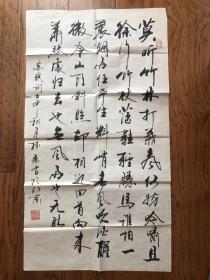 莫听穿林打叶声何妨吟啸且
徐行竹杖芒鞋轻胜马谁怕一
蓑烟雨任平生料峭春风吹酒醒
微冷山头斜照却相迎回首向来
萧瑟处归去也无风雨也无晴
苏轼词壬申秋月